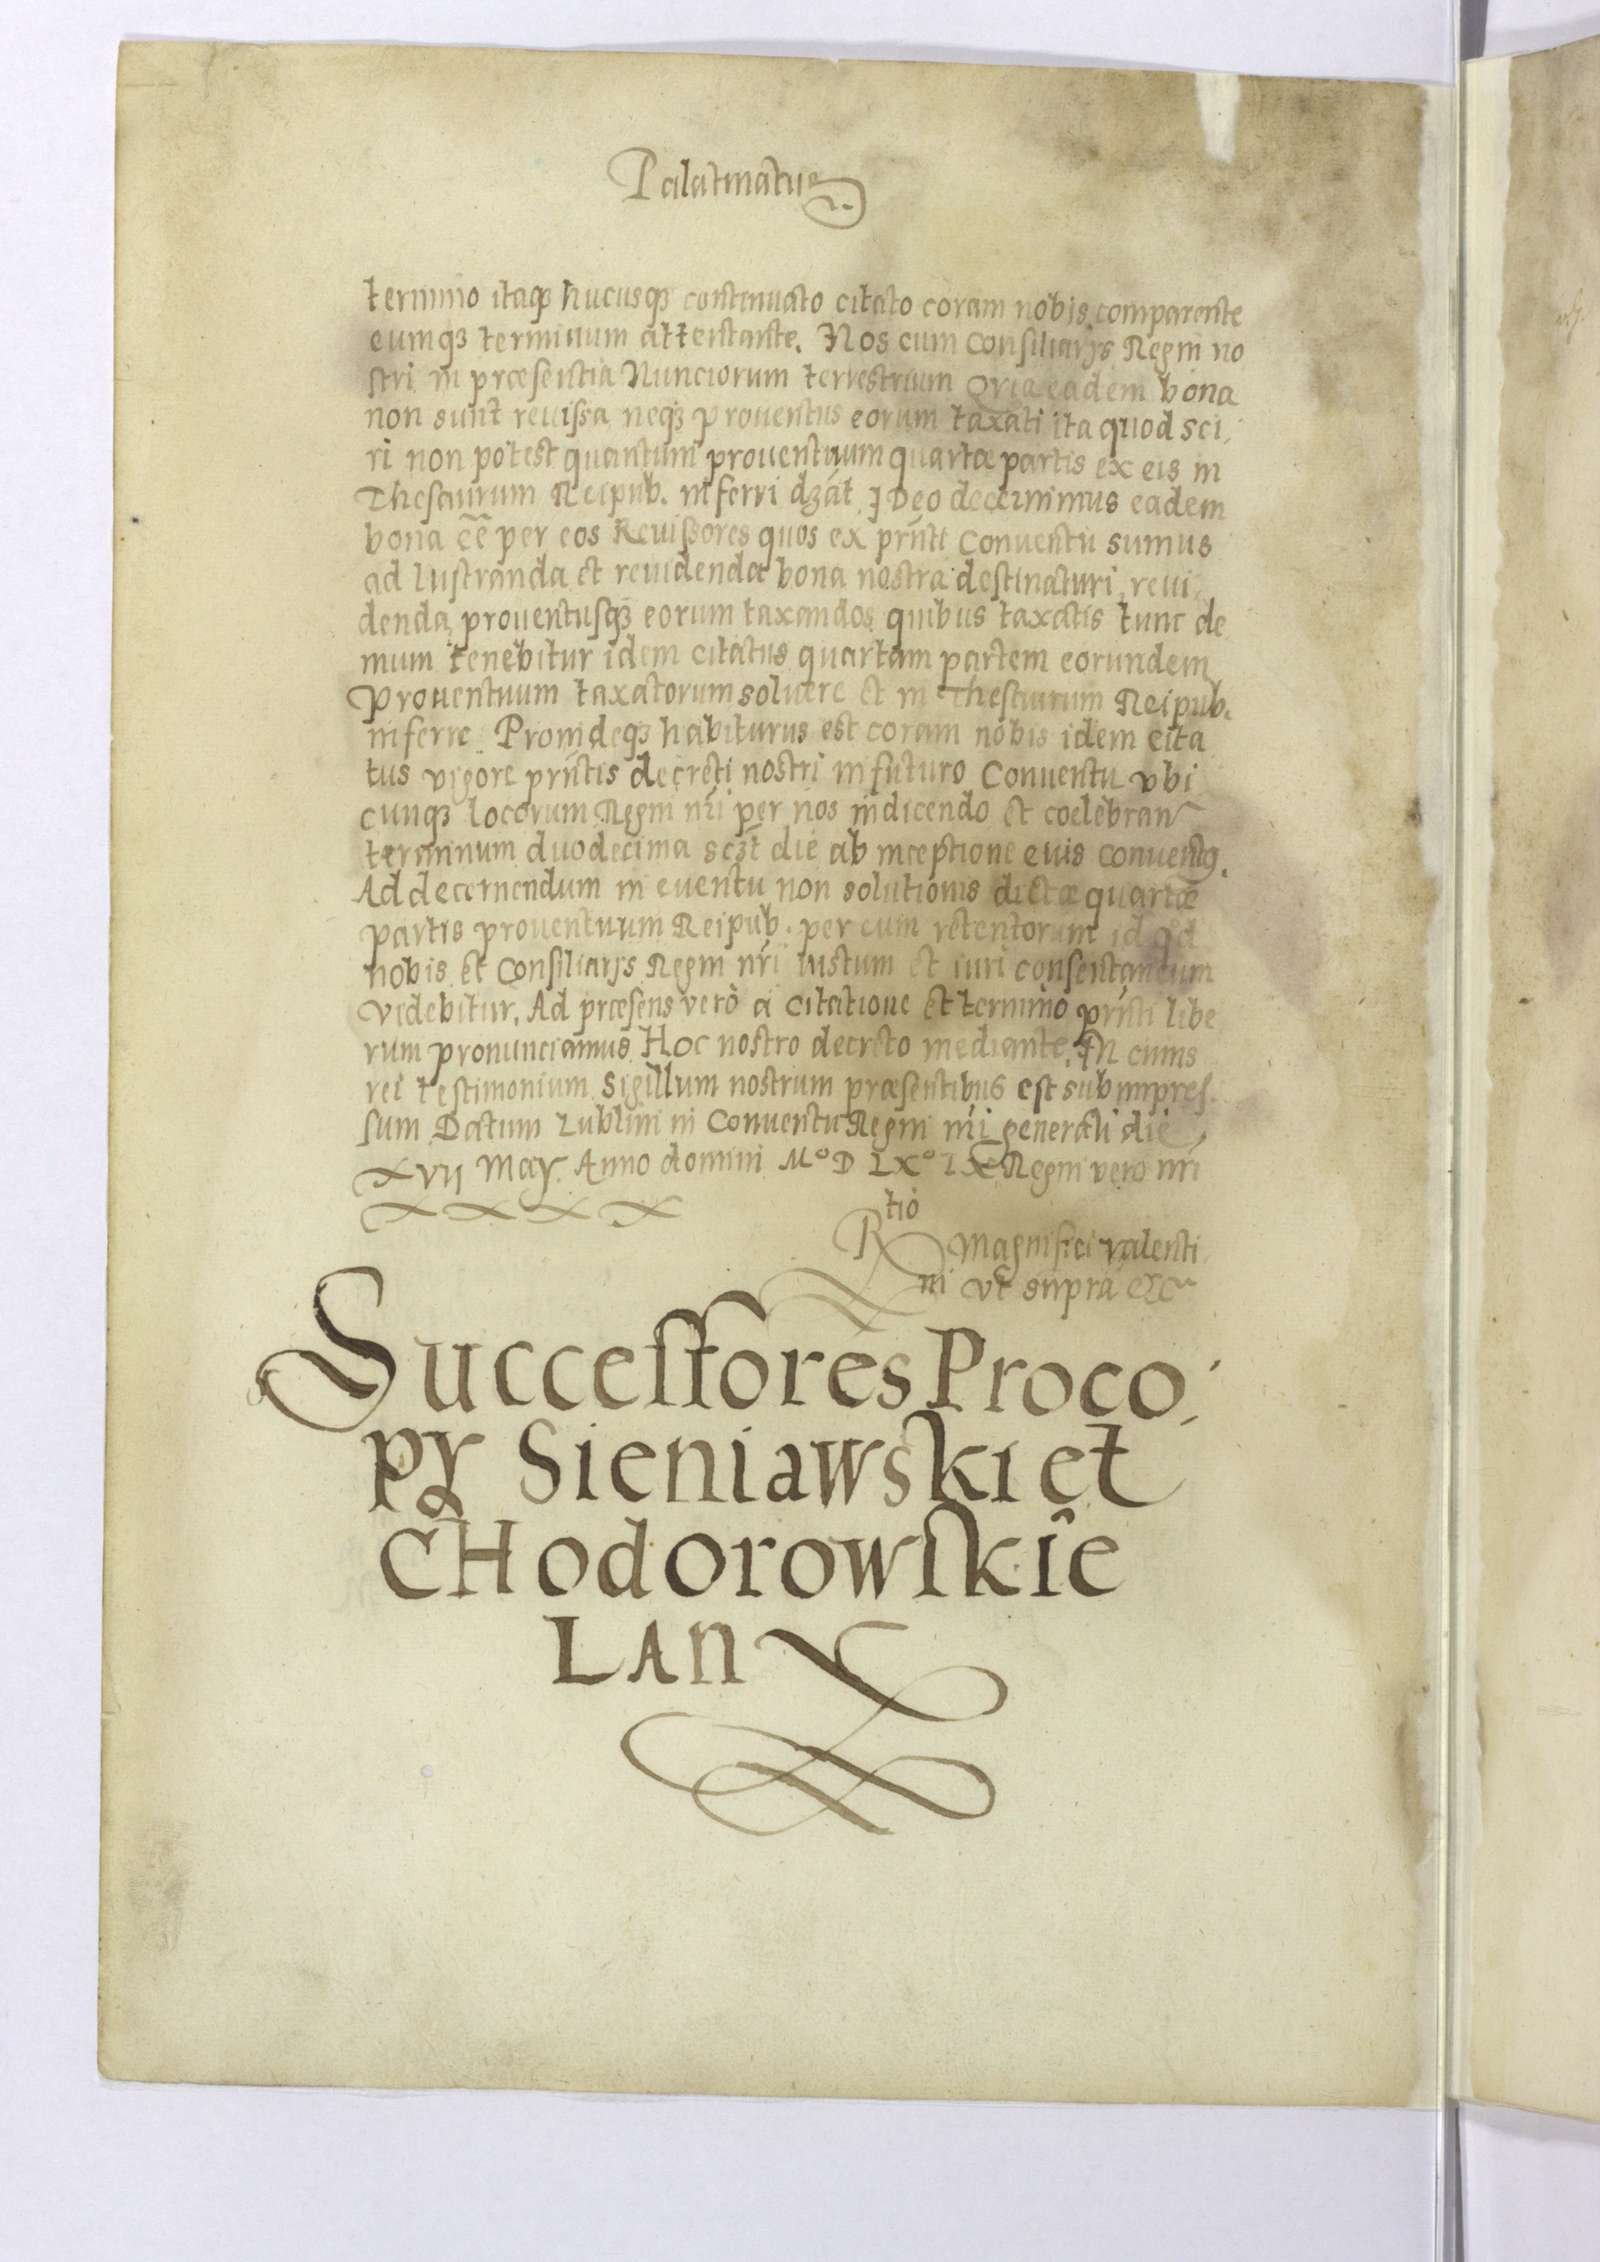 Palatinatus
termino itaqȝ hucusqȝ continuato citato coram nobis comparente
eumqȝ terminum attentante. Nos cum Consiliarijs Regni no
stri in præsentia Nunciorum terrestrium Qria eadem bona
non sunt reuissa neqȝ prouentus eorum taxati ita quod sci,
ri non potest quantum prouentuum quartæ partis ex eis in
Thesaurum Reipub. inferri dȝāt, Ideo decernimus eadem
bona eē per eos Reuissores quos ex prn̄ti Conuentu sumus
ad lustranda et reuidenda bona nostra destinaturi, reui,
denda, prouentusqȝ eorum taxandos quibus taxatis tunc de
mum tenebitur idem citatus quartam partem eorundem
Prouentuum taxatorum soluere et in Thesaurum Reipub.
inferre. Proindeqȝ habiturus est coram nobis idem cita
tus vigore prn̄tis decreti nostri in futuro Conuentu vbi
cunqȝ locorum Regni nr̄i per nos indicendo et coelebran
terminum duodecima scȝt die ab inceptione euis conuentꝯ.
Ad decernendum in euentu non solutionis dictæ quartæ
partis prouentuum Reipub. per eum retentorum id qd
nobis et Consiliarijs Regni nr̄i iustum et iuri consentaneum
videbitur. Ad præsens verò a citatione et termino prn̄ti libe
rum pronunciamus Hoc nostro decreto mediante. In cuius
rei testimonium Sigillum nostrum præsentibus est subimpres
sum Datum Lublini in Conuentu Regni nr̄i generali die
XVII May. Anno domini Mº D LXº IX Regni vero nr̄i
Rtio
Magnifici valenti
ni vt supra etc
Successores Proco,
py Sieniawski et
CHodorowskie
LAN